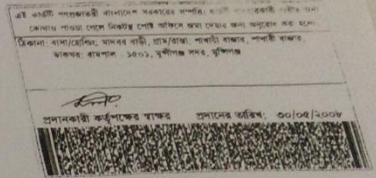 এই কার্ডটি গণপ্রজাতন্ত্রী বাংলাদেশ সরকারের সম্পত্তি। কার্ডটি ব্যবহারকারী ব্যতীত অন্য
কোথাও পাওয়া গেলে নিকটস্থ পোস্ট অফিসে জমা দেবার জন্য অনুরোধ করা হলো।
ঠিকানা: বাসা/হোল্ডিং: মাদবর বাড়ী, গ্রাম/রাস্তা: পাখাটা বাজার, পাখারী বাজার,
ডাকঘর: রামপাল - ১৫০১, মুন্সীগঞ্জ সদর, মুন্সিগঞ্জ
প্রদানকারী কর্তৃপক্ষের স্বাক্ষর প্রদানের তারিখ: ৩০/০৫/২০০৮